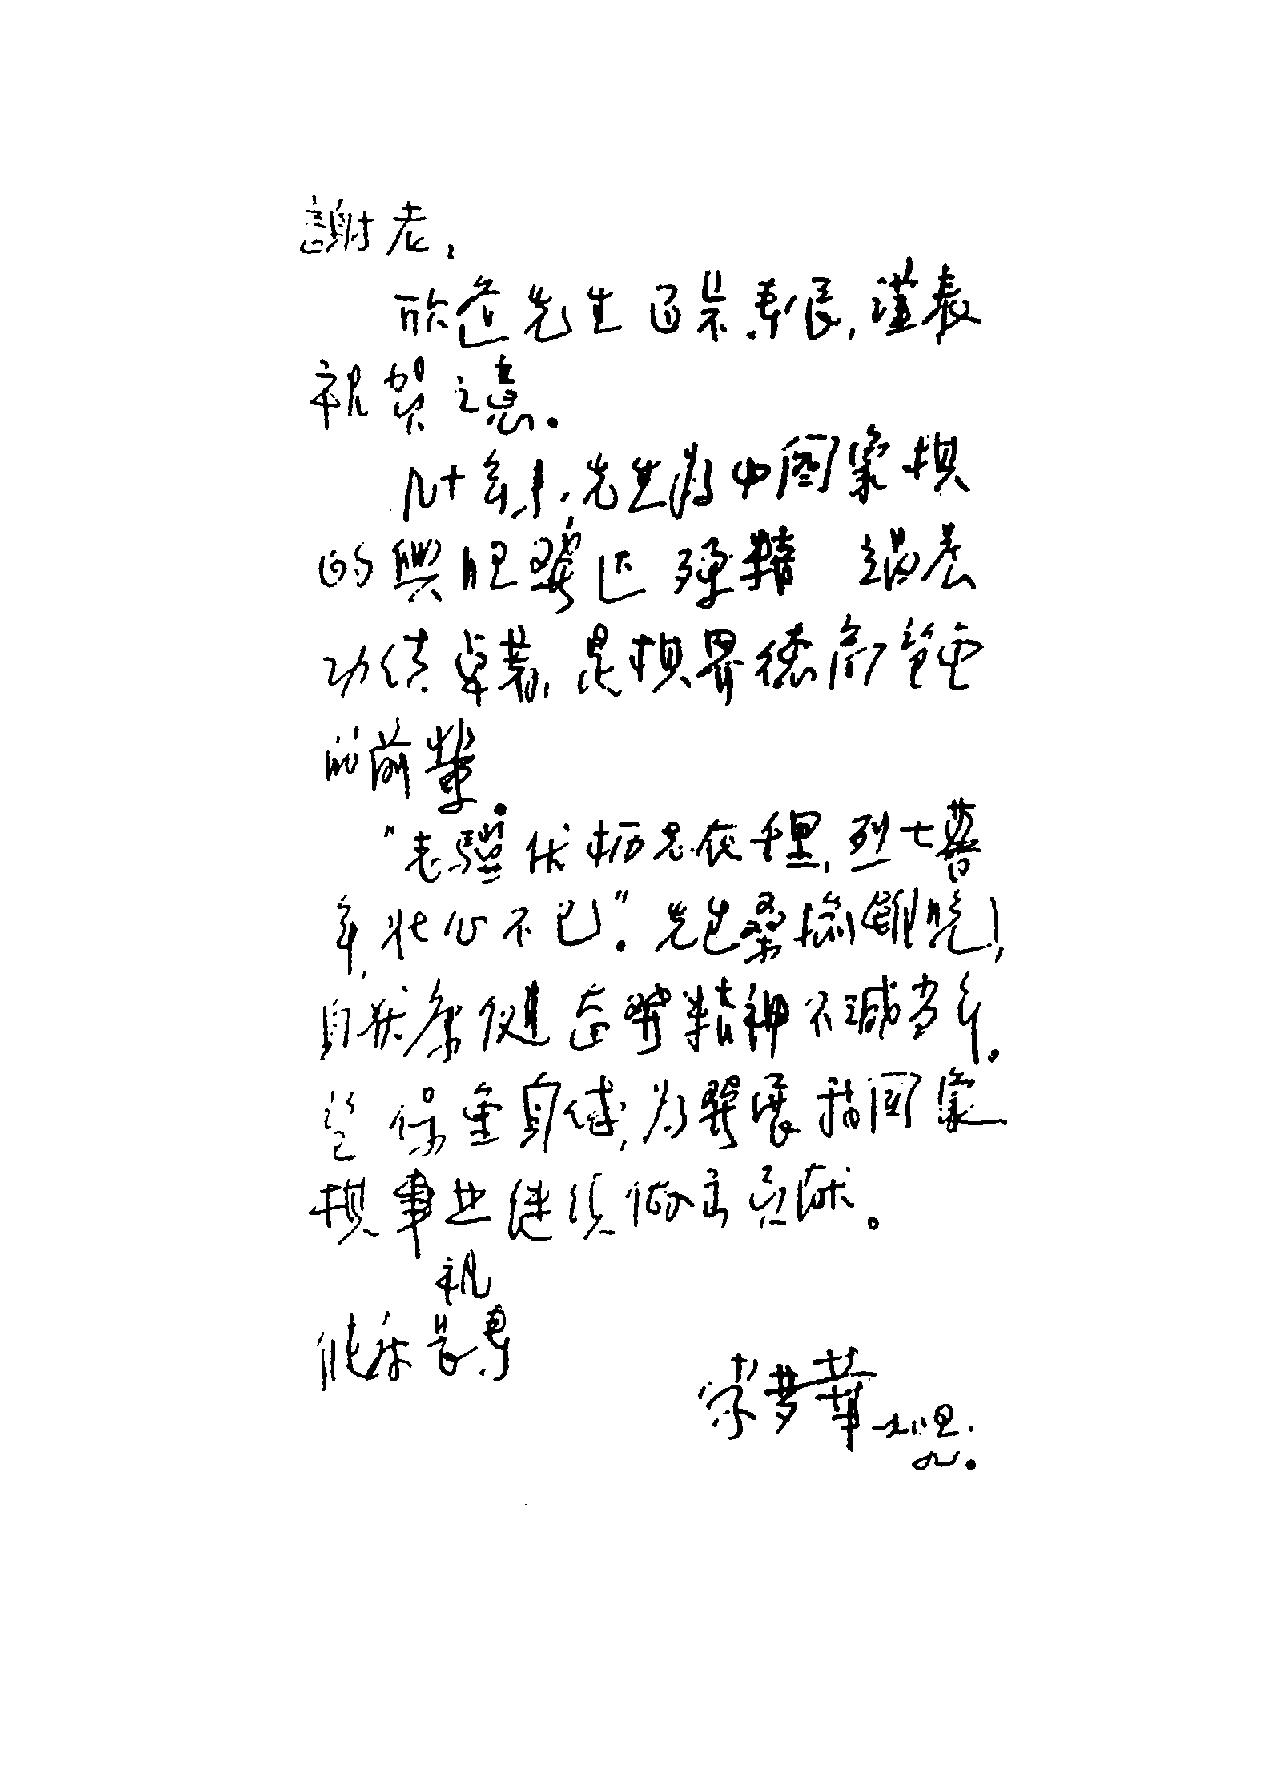 謝老,
欣逢先生百岁寿辰,謹表
祝贺之意.
几十年来,先生為中国象棋
的興旺發达殚精竭虑
功绩卓著,是棋界德高望重
的前輩.
"老骥伏枥志在千里,烈士暮
年,壮心不已".先生桑榆雖晚,
身状康健奋發精神不减当年.
望保重身体,为發展我国象
棋事业继续做出贡献。
祝
健康長寿
宋梦華
九.